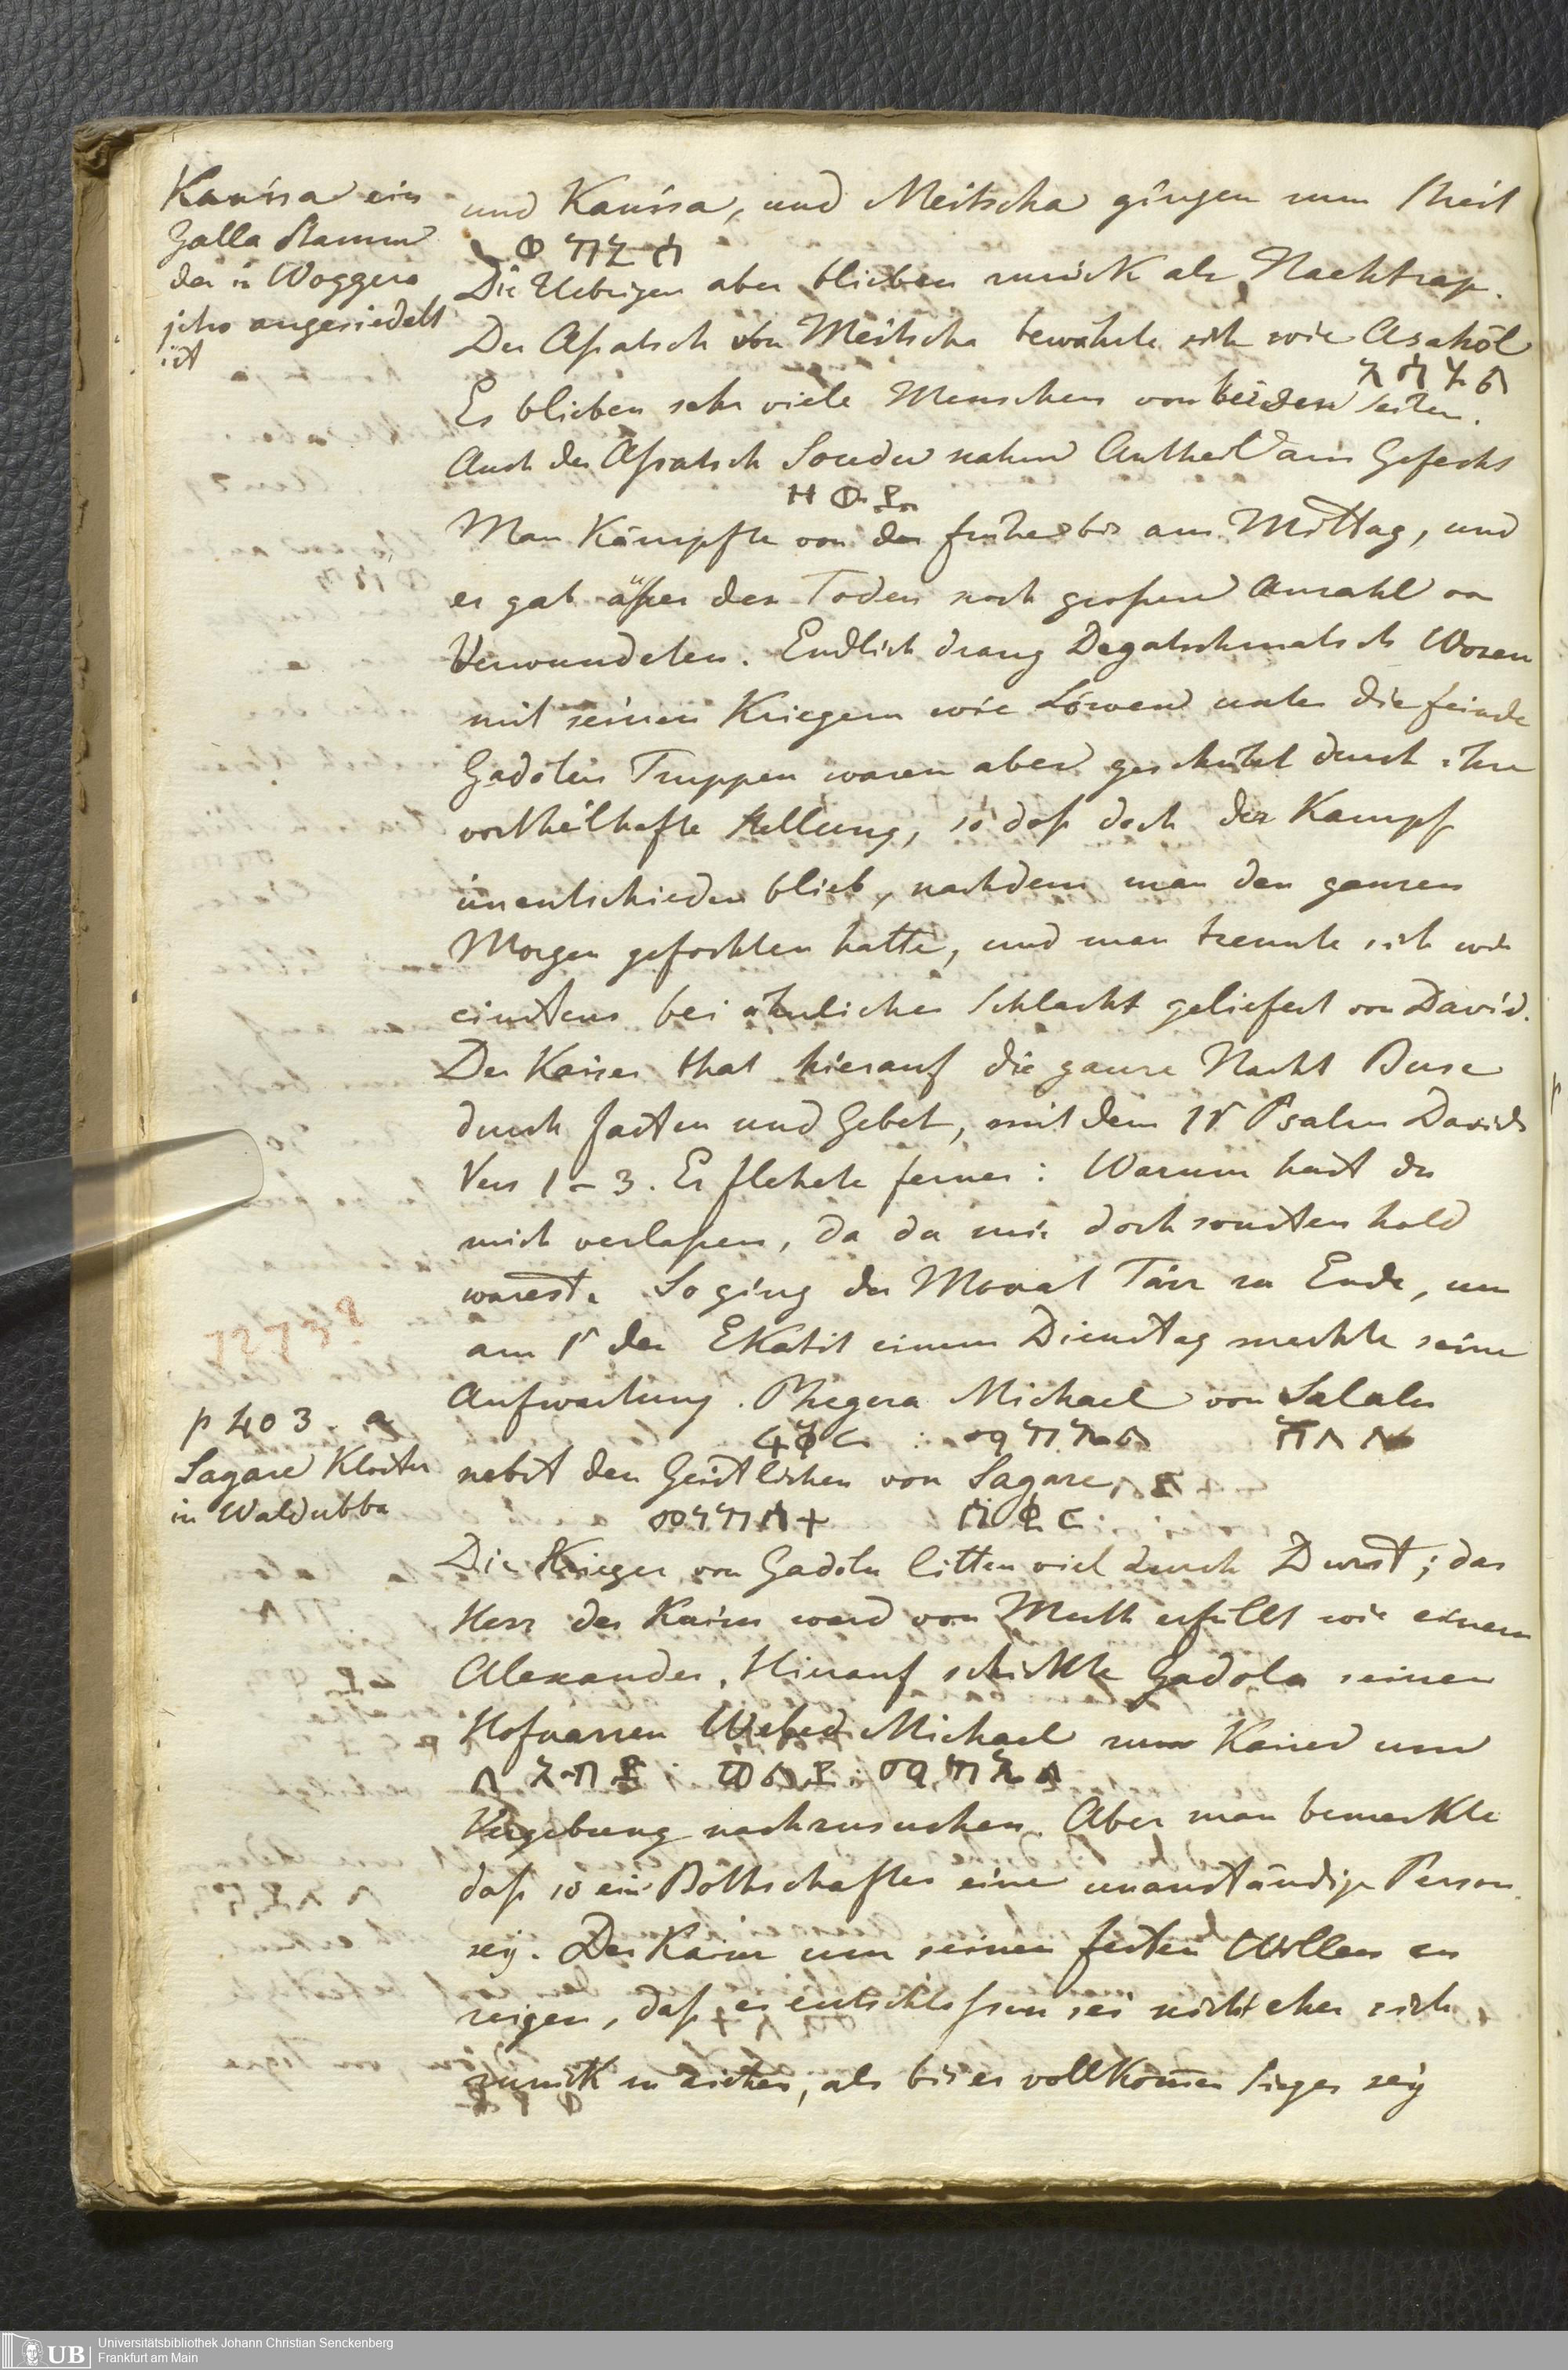 Kauísa ein
Galla Stamm
der in Woggera
jetzo angesiedelt
ist
und Kauísa, und Meitscha gingen zum Theil
Die Uebrigen aber blieben zurück als Nachtrap.
Der Asalasch von Meitscha bewährte sich wie Asahöl
Es blieben sehr viele Menschen von beiden Seiten.
Auch der Asalasch Soudu nahm Antheil am Gefecht
ዘውዴ
Man Kämpfte von der frühe bis am Mittag, und
er gab außer den Toden noch großen Anzahl von
Verwundeten. Endlich drang Degatschmatsch Woren
mit seinen Kriegern wie Löwen unter die feinde
Gadolus Truppen waren aber geschützt durch ihre
vortheilhafte Stellung, so daß doch der Kampf
unentschieden blieb, nachdem man den ganzen
Morgen gefochten hatte, und man trennte sich wie
einstens bei ähnlicher Schlacht geliefert von David.
Der Kaiser that hierauf die ganze Nacht Buse
durch fasten und Gebet, mit dem Psalm Davids
Vers 1–3. Er flehete ferner: Warum hast du
mich verlaßen, da du mir doch sonsten hold
warest. So ging der Monat Tärr zu Ende, un
am 1r der EKatit einem Dienstag machte seine
Aufwartung. Phegera Michael von Salala
p 403. a
Sagare Kloster
in Waldubba
nebst den Geistlichen von Sagare
Die Krieger von Gadolu litten viel durch Durst; das
Herz des Kaisers ward von Muth erfüllt wie einem
Alexander. Hierauf schickte Gadolu seinen
Hofnarren Welled Michael zum Kaiser um
Vergebung nachzusuchen. Aber man bemerkte
daß so ein Bothschafter eine unanständige Person
sey. Der Kaiser um seinen festen Willen zu
zeigen, daß er entschloßen sei nicht eher sich
zurück zu ziehen, als bis er vollKom̅en Sieger sey
UB
Universitätsbibliothek Johann Christian Senckenberg
Frankfurt am Main